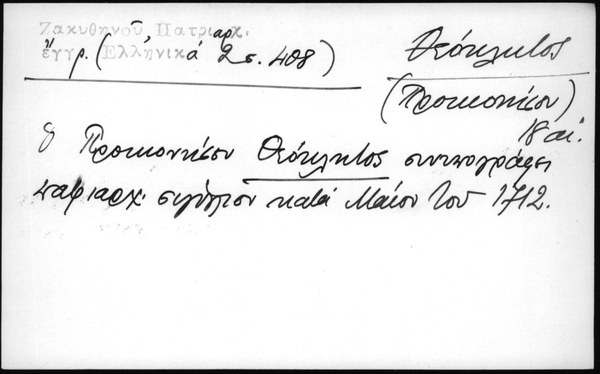 Ζακυθηνοῦ, Πατριαρχ.
ἔγγρ. (Ἑλληνικά 2 σ. 408)
Θεόκλητος
(Προικονήσου)
18 αἰ.
ὁ Προικονήσου Θεόκλητος συνυπογράφει
πατριαρχ. σιγίλλιον κατά Μάϊον τοῦ 1712.